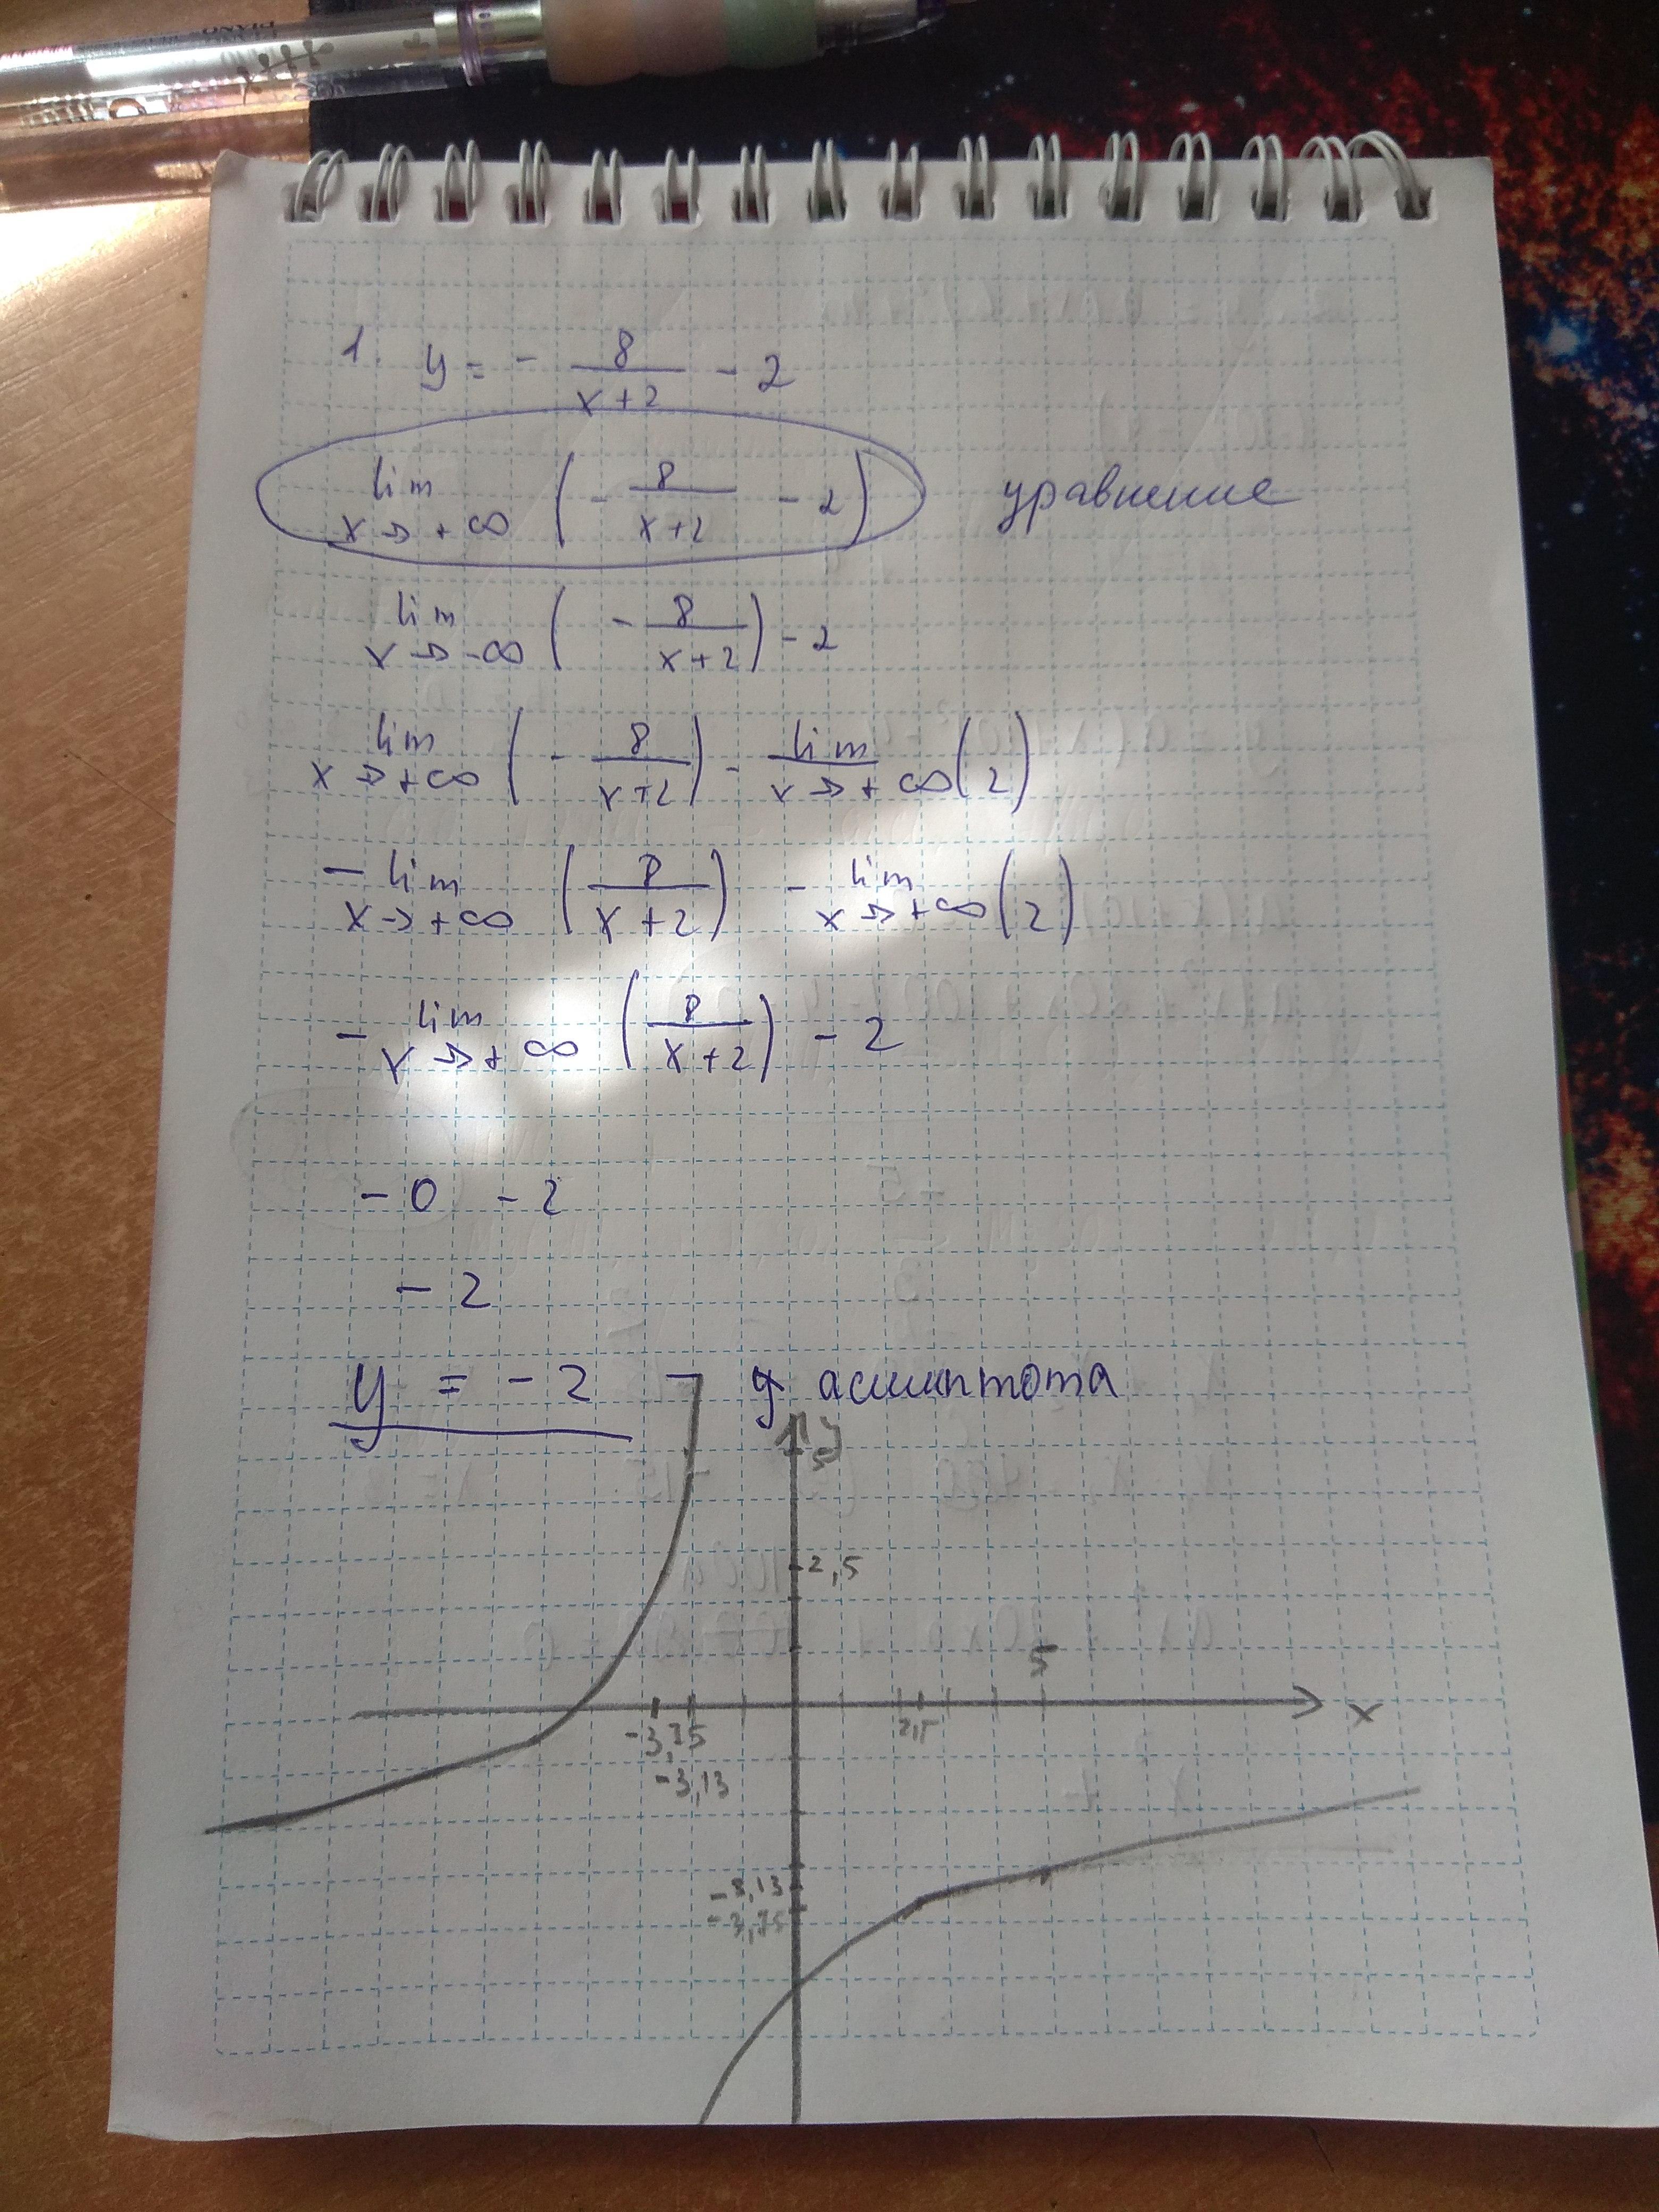 1. y = - 8/(x+2) - 2
lim x→+∞ (- 8/(x+2) - 2) уравнение
lim x→-∞ (- 8/(x+2)) - 2
lim x→+∞ (- 8/(x+2)) - lim x→+∞ (2)
- lim x→+∞ (8/(x+2)) - lim x→+∞ (2)
- lim x→+∞ (8/(x+2)) - 2
- 0 - 2
- 2
y = - 2 - асимптота
y
5
2,5
5
-3,75 2,5 x
-3,13
-3,13
-3,75